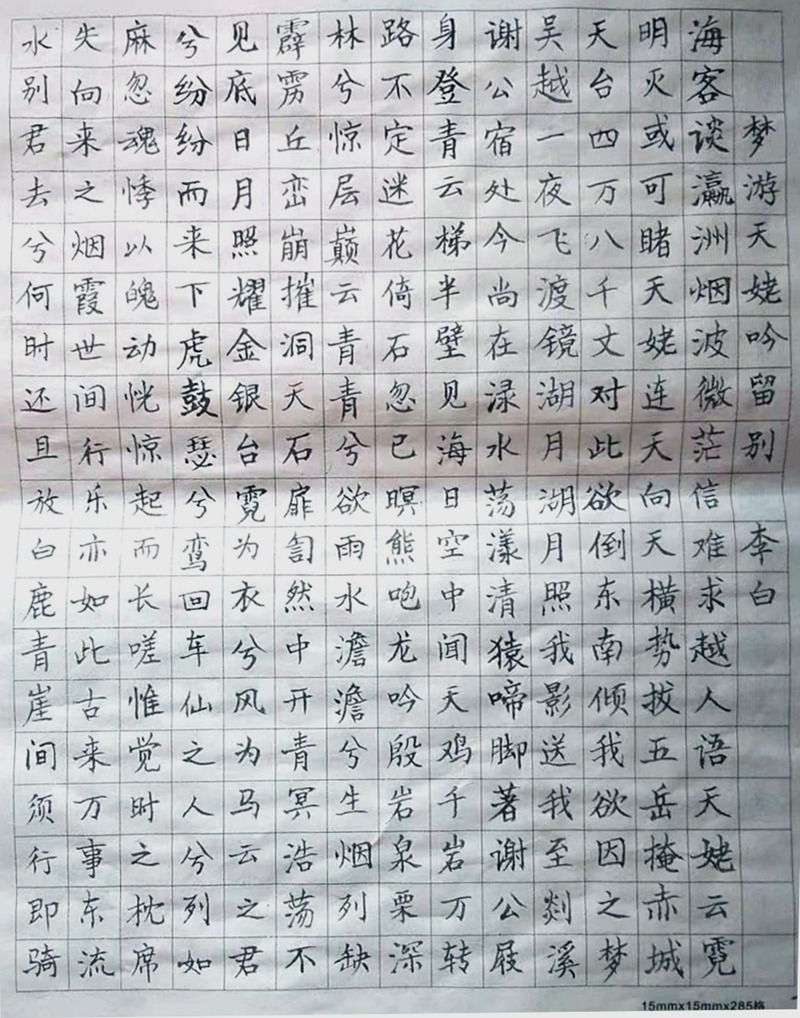 梦游天姥吟留别 李白
海客谈瀛洲烟波微茫信难求越人语天姥云霓
明灭或可睹天姥连天向天横势拔五岳掩赤城
天台四万八千丈对此欲倒东南倾我欲因之梦
吴越一夜飞渡镜湖月湖月照我影送我至剡溪
谢公宿处今尚在渌水荡漾清猿啼脚著谢公屐
身登青云梯半壁见海日空中闻天鸡千岩万转
路不定迷花倚石忽已暝熊咆龙吟殷岩泉栗深
林兮惊层巅云青青兮欲雨水澹澹兮生烟列缺
霹雳丘峦崩摧洞天石扉訇然中开青冥浩荡不
见底日月照耀金银台霓为衣兮风为马云之君
兮纷纷而来下虎鼓瑟兮鸾回车仙之人兮列如
麻忽魂悸以魄动恍惊起而长嗟惟觉时之枕席
失向来之烟霞世间行乐亦如此古来万事东流
水别君去兮何时还且放白鹿青崖间须行即骑
15mmx15mmx285格